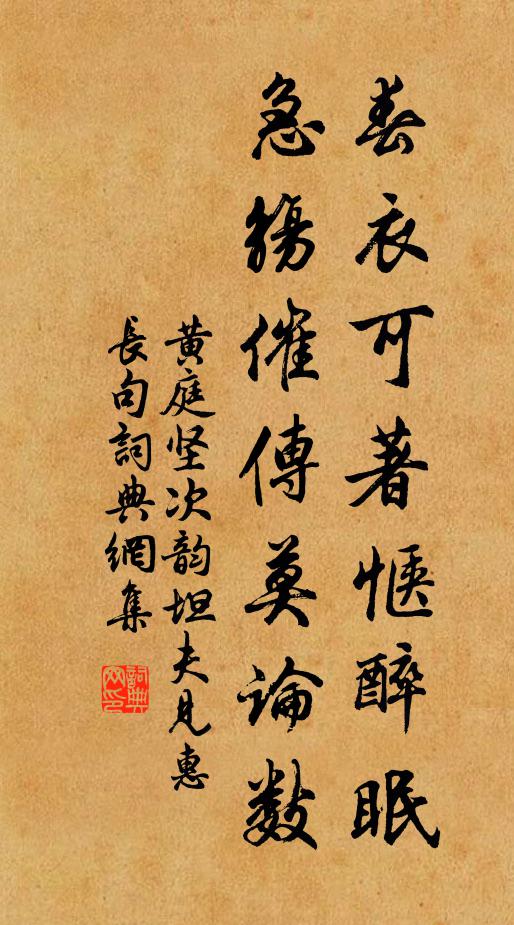 春衣可著惬醉眠
急觞催傳莫論數
黄庭坚次韵坦夫見惠
長句詞典網集
詞典网印